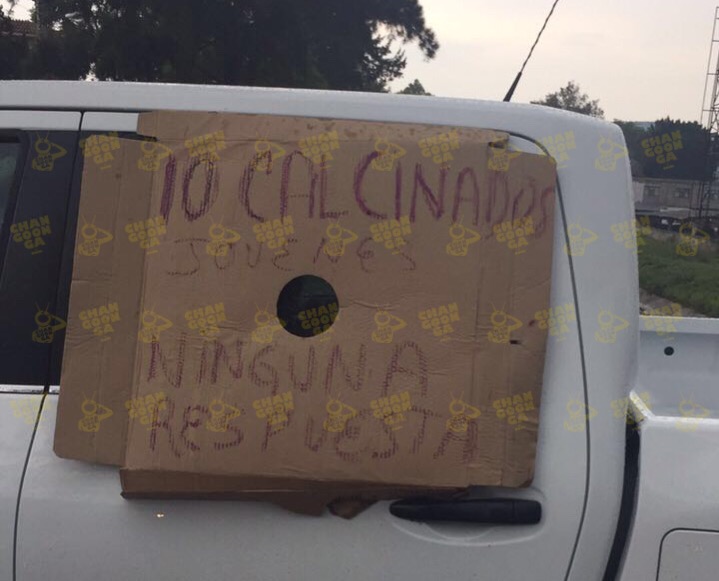 10 CALCINADOS
JOVENES
NINGUNA
RESPUESTA
SHAN
GOON
GA